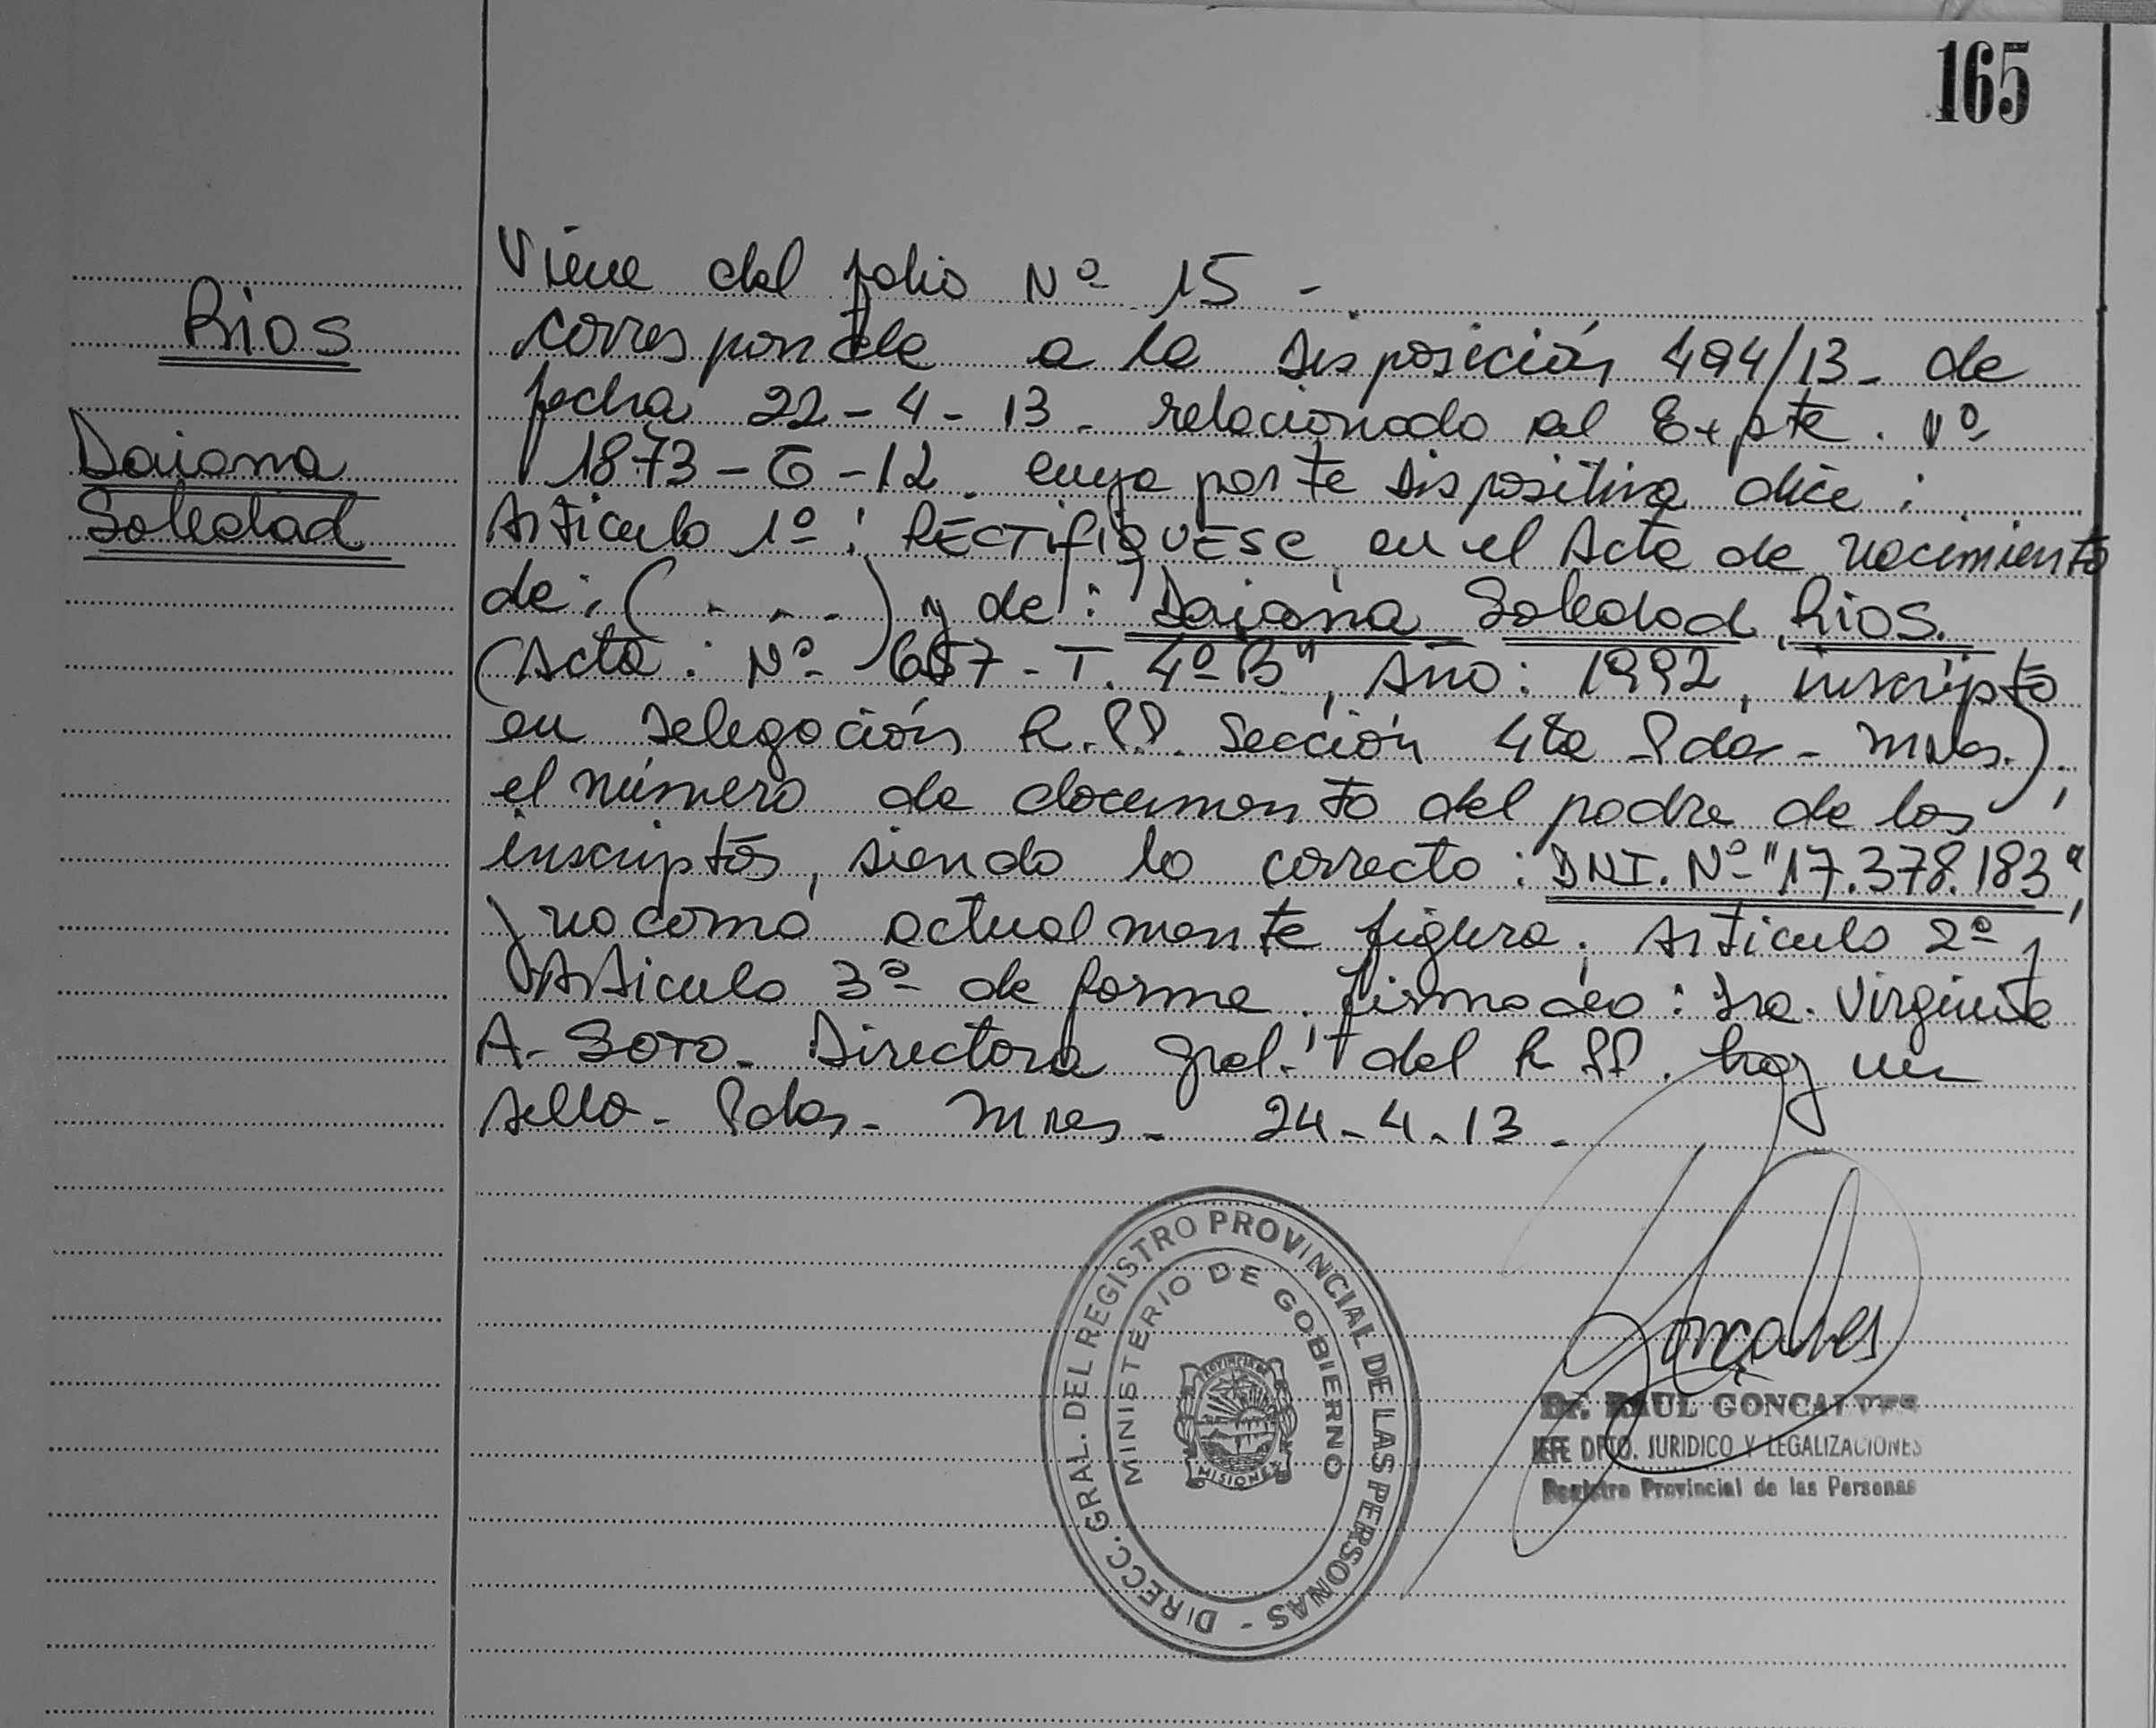 165
Rios
Daiana
Soledad
Viene del folio Nº 15 -
corresponde a la Disposición 494/13 - de
fecha 22-4-13 - relacionado al Expte. Nº
1873-G-12. cuya parte dispositiva dice:
Articulo 1º: RECTIFIQUESE, en el Acta de nacimiento
de: (. . . .) y de: Daiana Soledad Rios.
(Acta: Nº 657 - T. 4º B", Año: 1992, inscripto
en Delegación R.PP. Sección 4ta Pdas - Mnes.),
el número de documento del padre de los
inscriptos, siendo lo correcto: DNI. Nº "17.378.183",
y no como actualmente figura. Articulo 2º y
Articulo 3º de forma. firmado: Sra. Virginia
A. SOTO - Directora Gral. del R PP. hay un
sello - Pdas - Mnes - 24-4-13 -
DIRECC. GRAL. DEL REGISTRO PROVINCIAL DE LAS PERSONAS -
MINISTERIO DE GOBIERNO
PROVINCIA DE
MISIONES
Goncalves
Dr. RAUL GONCALVES
JEFE DPTO. JURIDICO Y LEGALIZACIONES
Registro Provincial de las Personas